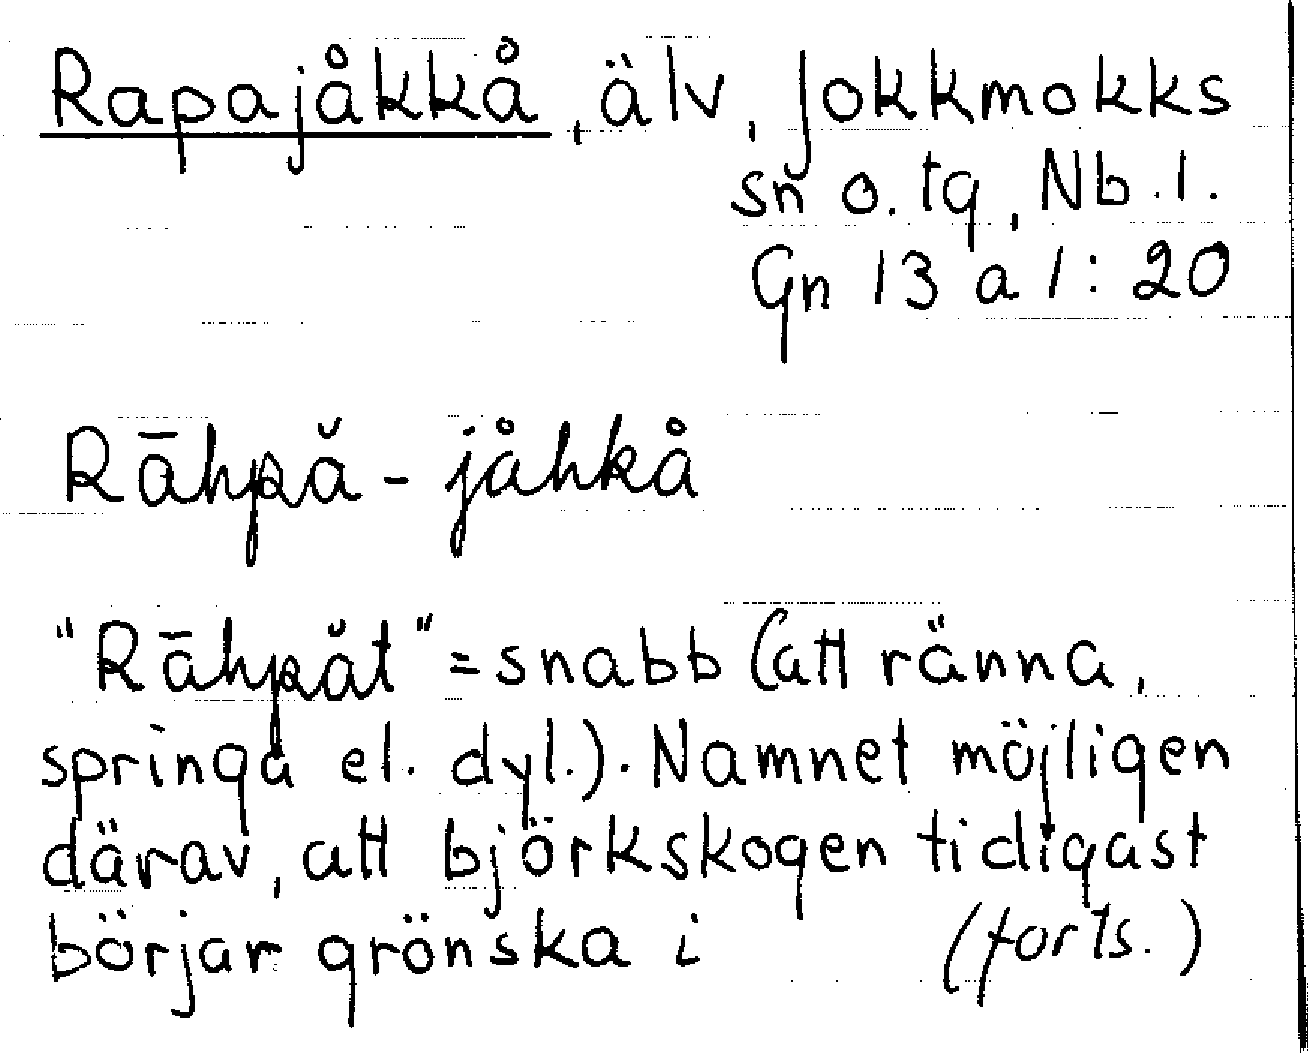 Rapajåkkå, älv, Jokkmokks
sn o. tg, Nb. l.
Gn 13 a 1:20
Rāhpă - jåhkå
"Rāhpăt" = snabb (att ränna,
springa el. dyl.). Namnet möjligen
därav, att björkskogen tidigast
börjar grönska i (forts.)